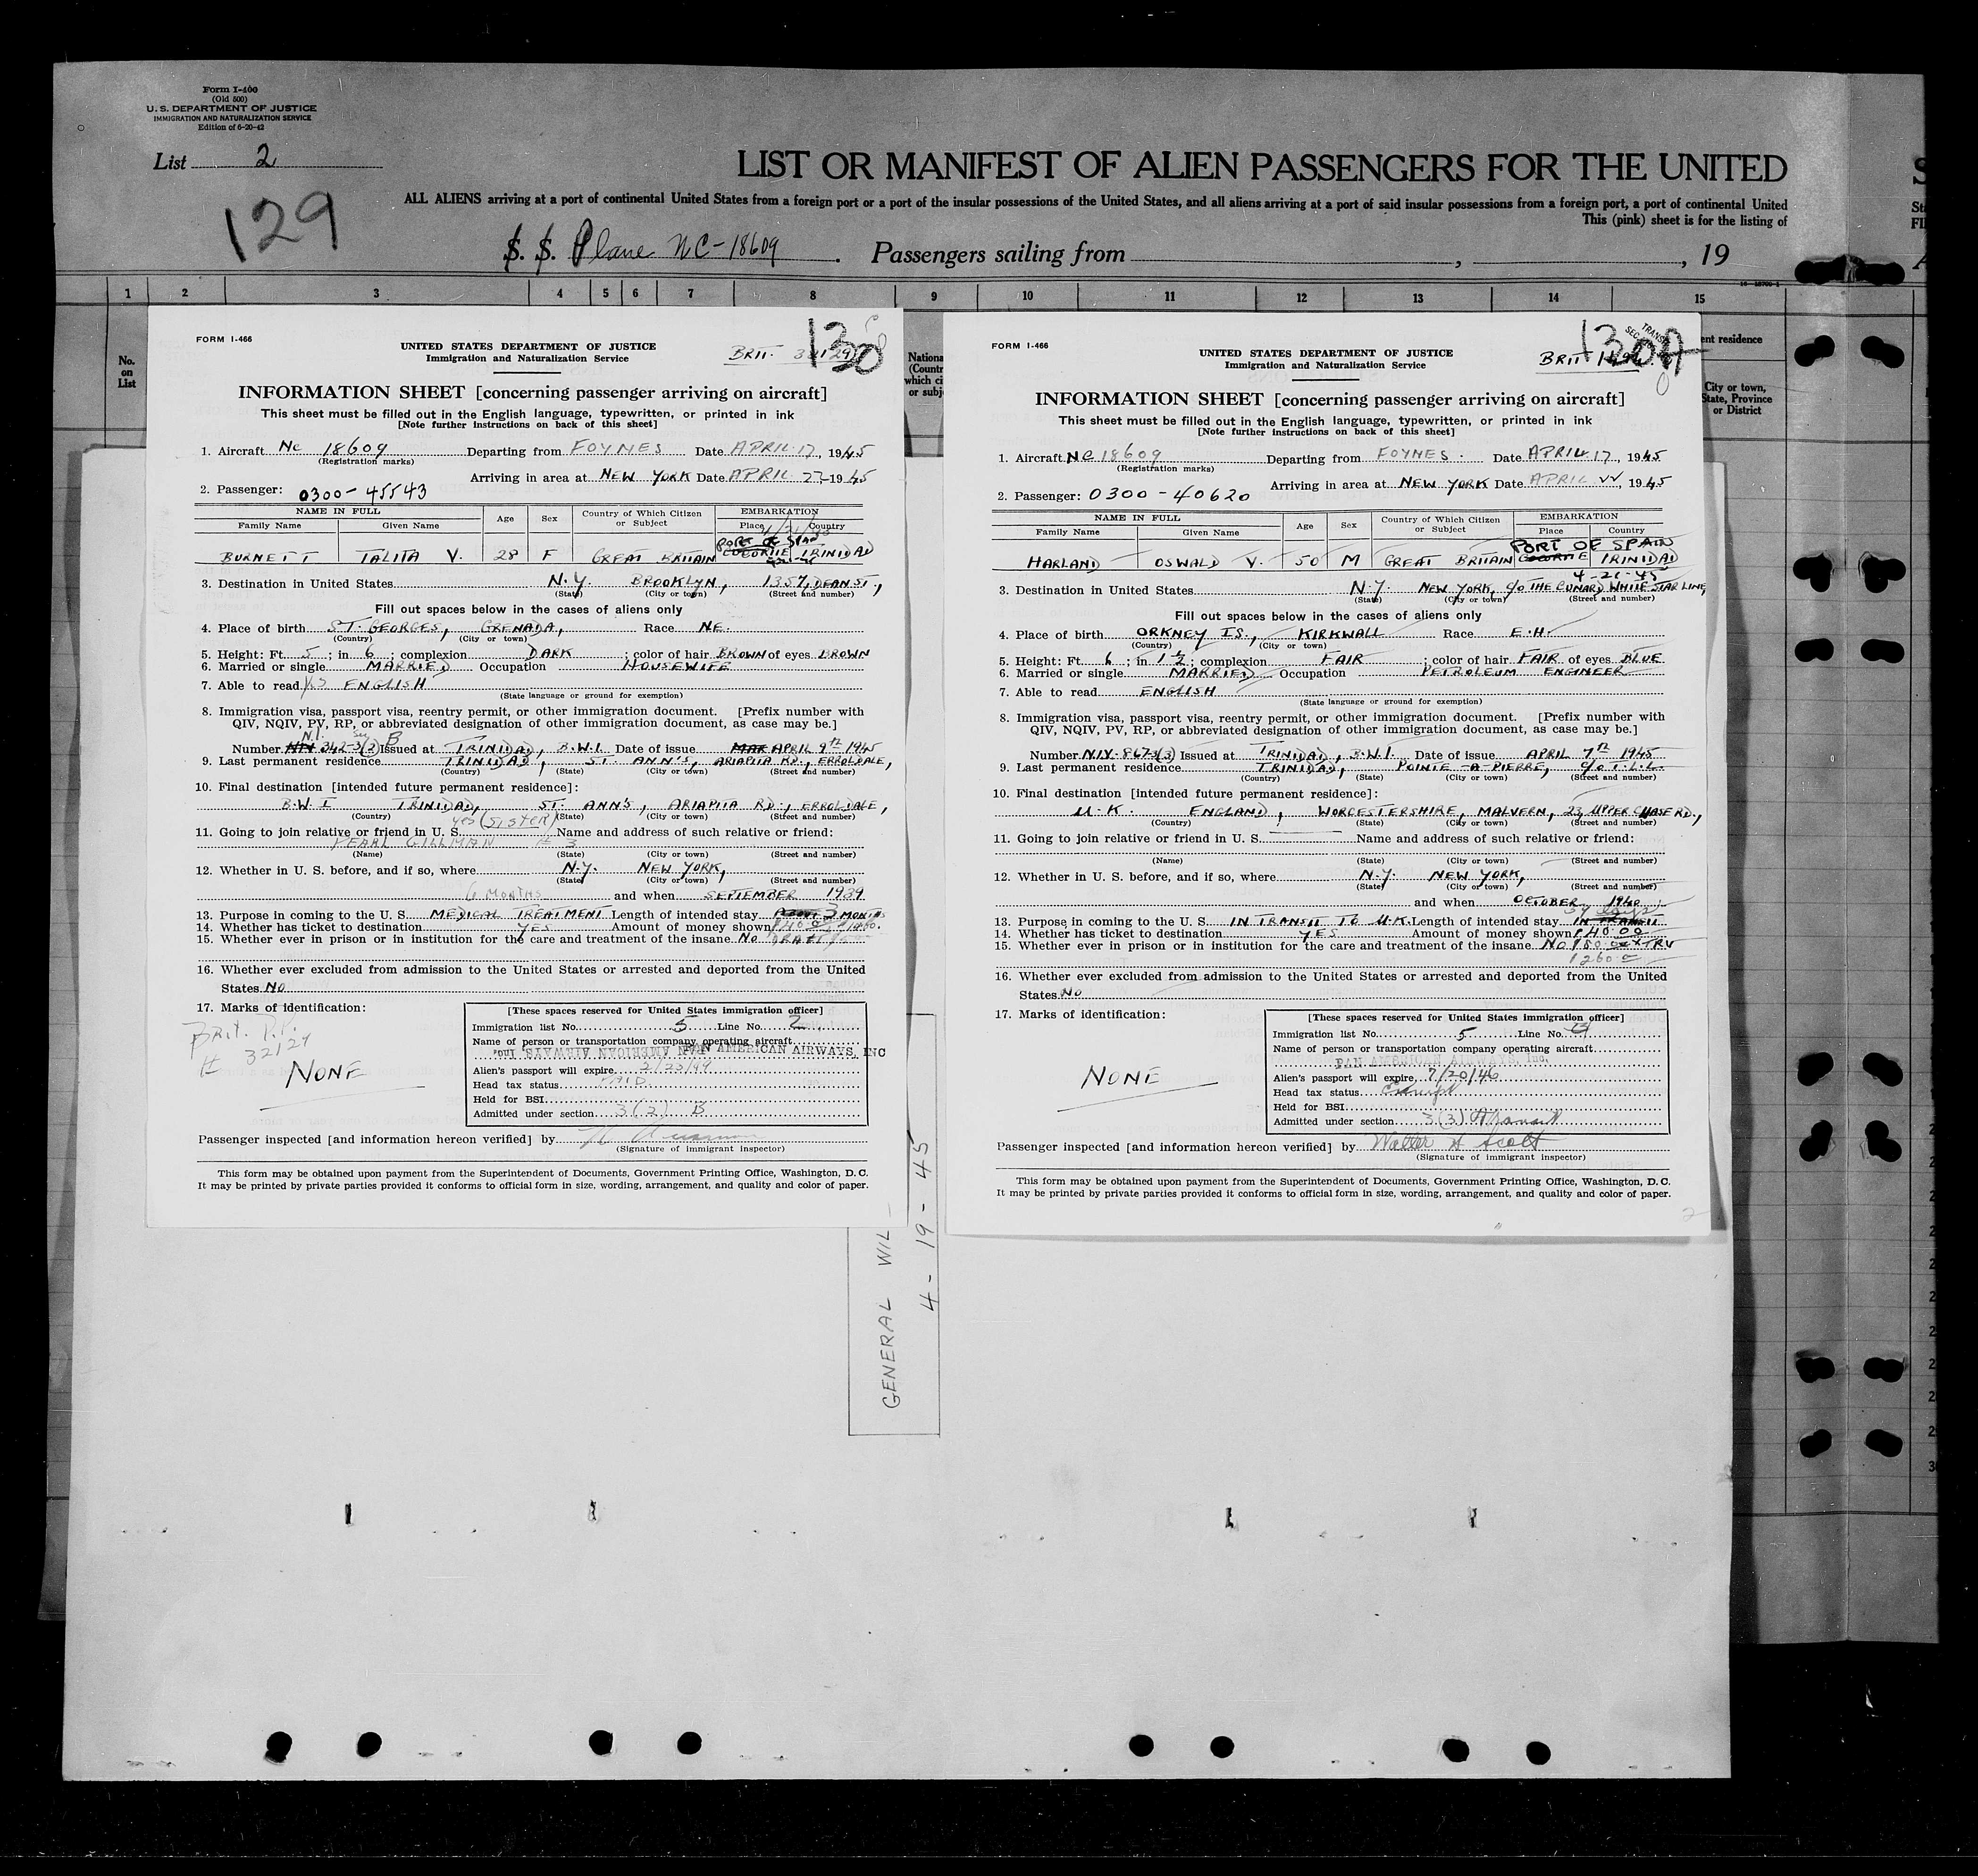 Form I-400
(Old 500)
U. S. DEPARTMENT OF JUSTICE
IMMIGRATION AND NATURALIZATION SERVICE
Edition of 6-20-42
List 2
129
LIST OR MANIFEST OF ALIEN PASSENGERS FOR THE UNITED
ALL ALIENS arriving at a port of continental United States from a foreign port or a port of the insular possessions of the United States, and all aliens arriving at a port of said insular possessions from a foreign port, a port of continental United
This (pink) sheet is for the listing of
S. S. Plane NC-18609. Passengers sailing from , , 19
1 2 3 4 5 6 7 8 9 10 11 12 13 14 15
No. on List
City or town, State, Province or District
FORM I-466
UNITED STATES DEPARTMENT OF JUSTICE
Immigration and Naturalization Service
BRIT.
130
INFORMATION SHEET [concerning passenger arriving on aircraft]
This sheet must be filled out in the English language, typewritten, or printed in ink
[Note further instructions on back of this sheet]
1. Aircraft NC 18609 Departing from FOYNES Date APRIL 17, 1945
(Registration marks)
Arriving in area at NEW YORK Date APRIL 22 1945
2. Passenger: 0300-45543
NAME IN FULL Age Sex Country of Which Citizen or Subject EMBARKATION
Family Name Given Name Place Country
PORT OF SPAIN
BURNETT TALITA V. 28 F GREAT BRITAIN TRINIDAD
3. Destination in United States N.Y. BROOKLYN, 1357, DEAN ST.,
(State) (City or town) (Street and number)
Fill out spaces below in the cases of aliens only
4. Place of birth ST. GEORGES, GRENADA, Race NE.
(Country) (City or town)
5. Height: Ft. 5; in 6; complexion DARK; color of hair BROWN of eyes BROWN
6. Married or single MARRIED Occupation HOUSEWIFE
7. Able to read yes ENGLISH
(State language or ground for exemption)
8. Immigration visa, passport visa, reentry permit, or other immigration document. [Prefix number with
QIV, NQIV, PV, RP, or abbreviated designation of other immigration document, as case may be.]
Number 342-3(2) B Issued at TRINIDAD, B.W.I. Date of issue APRIL 9th 1945
9. Last permanent residence TRINIDAD, ST. ANN'S, ARIAPITA RD., ERROLDALE,
(Country) (State) (City or town) (Street and number)
10. Final destination [intended future permanent residence]:
B.W.I TRINIDAD, ST. ANNS, ARIAPITA RD., ERROLDALE,
(Country) (State) (City or town) (Street and number)
11. Going to join relative or friend in U. S. yes (SISTER) Name and address of such relative or friend:
PEARL GILLMAN # 3
(Name) (State) (City or town) (Street and number)
12. Whether in U. S. before, and if so, where N.Y. NEW YORK,
(State) (City or town) (Street and number)
6 MONTHS and when SEPTEMBER 1939
13. Purpose in coming to the U. S. MEDICAL TREATMENT Length of intended stay 3 MONTHS
14. Whether has ticket to destination YES Amount of money shown
15. Whether ever in prison or in institution for the care and treatment of the insane No
16. Whether ever excluded from admission to the United States or arrested and deported from the United
States No
17. Marks of identification:
Brit. P.P.
# 32129
NONE
[These spaces reserved for United States immigration officer]
Immigration list No. 5 Line No. 2
Name of person or transportation company operating aircraft
PAN AMERICAN AIRWAYS, INC
Alien's passport will expire
Head tax status PAID
Held for BSI
Admitted under section 3(2) B
Passenger inspected [and information hereon verified] by
(Signature of immigrant inspector)
This form may be obtained upon payment from the Superintendent of Documents, Government Printing Office, Washington, D. C.
It may be printed by private parties provided it conforms to official form in size, wording, arrangement, and quality and color of paper.
FORM I-466
UNITED STATES DEPARTMENT OF JUSTICE
Immigration and Naturalization Service
BRIT
130A
INFORMATION SHEET [concerning passenger arriving on aircraft]
This sheet must be filled out in the English language, typewritten, or printed in ink
[Note further instructions on back of this sheet]
1. Aircraft NC 18609 Departing from FOYNES. Date APRIL 17, 1945
(Registration marks)
Arriving in area at NEW YORK Date APRIL 22, 1945
2. Passenger: 0300-40620
NAME IN FULL Age Sex Country of Which Citizen or Subject EMBARKATION
Family Name Given Name Place Country
PORT OF SPAIN
HARLAND OSWALD V. 50 M GREAT BRITAIN TRINIDAD
4-21-45
3. Destination in United States N.Y. NEW YORK, c/o THE CUNARD WHITE STAR LINE,
(State) (City or town) (Street and number)
Fill out spaces below in the cases of aliens only
4. Place of birth ORKNEY IS., KIRKWALL Race E.H.
(Country) (City or town)
5. Height: Ft. 6; in 1½; complexion FAIR; color of hair FAIR of eyes BLUE
6. Married or single MARRIED Occupation PETROLEUM ENGINEER
7. Able to read ENGLISH
(State language or ground for exemption)
8. Immigration visa, passport visa, reentry permit, or other immigration document. [Prefix number with
QIV, NQIV, PV, RP, or abbreviated designation of other immigration document, as case may be.]
Number NIV-867-3(3) Issued at TRINIDAD, B.W.I. Date of issue APRIL 7th 1945
9. Last permanent residence TRINIDAD, POINTE-A-PIERRE, c/o T.L.L.
(Country) (State) (City or town) (Street and number)
10. Final destination [intended future permanent residence]:
U.K. ENGLAND, WORCESTERSHIRE, MALVERN, 23, UPPER CHASE RD.,
(Country) (State) (City or town) (Street and number)
11. Going to join relative or friend in U. S. Name and address of such relative or friend:
(Name) (State) (City or town) (Street and number)
12. Whether in U. S. before, and if so, where N.Y. NEW YORK,
(State) (City or town) (Street and number)
and when OCTOBER 1940
13. Purpose in coming to the U. S. IN TRANSIT TO U.K. Length of intended stay IN TRANSIT
14. Whether has ticket to destination YES Amount of money shown
15. Whether ever in prison or in institution for the care and treatment of the insane No
16. Whether ever excluded from admission to the United States or arrested and deported from the United
States No
17. Marks of identification:
NONE
[These spaces reserved for United States immigration officer]
Immigration list No. 5 Line No.
Name of person or transportation company operating aircraft
PAN AMERICAN AIRWAYS, Inc.
Alien's passport will expire 7/20/46
Head tax status Exempt
Held for BSI
Admitted under section 3(3) Transit
Passenger inspected [and information hereon verified] by Walter H Scott
(Signature of immigrant inspector)
This form may be obtained upon payment from the Superintendent of Documents, Government Printing Office, Washington, D. C.
It may be printed by private parties provided it conforms to official form in size, wording, arrangement, and quality and color of paper.
GENERAL WIL
4-19-45